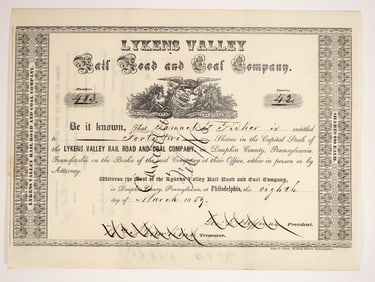 LYKENS VALLEY
Rail Road and Coal Company.
Number. Shares.
483 42
Be it known, That Samuel Fisher is entitled
to Forty two Shares in the Capital Stock of
the LYKENS VALLEY RAIL ROAD AND COAL COMPANY, Dauphin County, Pennsylvania,
Transferable on the Books of the said Company at their Office, either in person or by
Attorney.
Witness the Seal of the Lykens Valley Rail Road and Coal Company,
in Dauphin County, Pennsylvania, at Philadelphia, the eighth
day of March 1859.
President.
Treasurer.
LYKENS VALLEY RAIL ROAD AND COAL COMPANY.